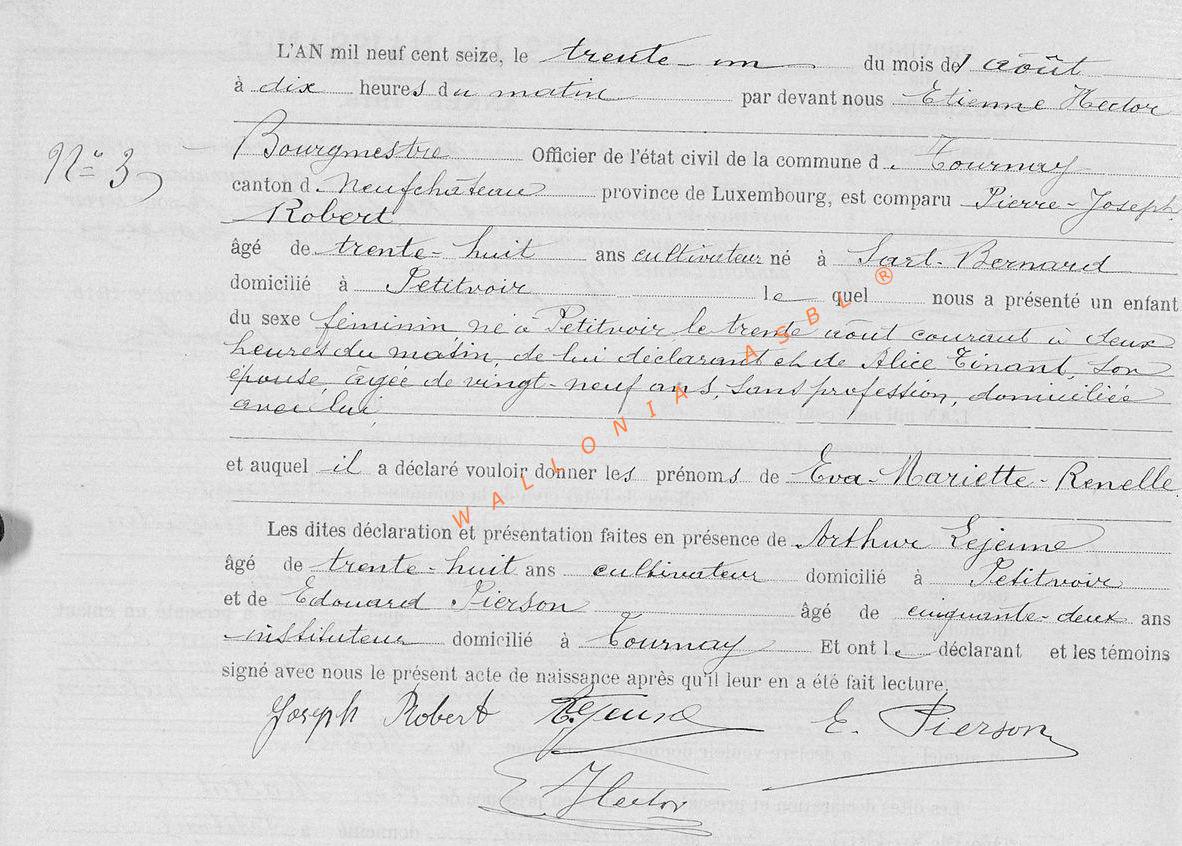 L'AN mil neuf cent seize, le trente-un du mois d'août
à dix heures du matin par devant nous Etienne Hector
Bourgmestre Officier de l'état civil de la commune d. Tournay
N° 3
canton d. Neufchâteau province de Luxembourg, est comparu Pierre-Joseph
Robert
âgé de trente-huit ans cultivateur né à Sart-Bernard
domicilié à Petitvoir le quel nous a présenté un enfant
du sexe féminin né à Petitvoir le trente août courant à deux
heures du matin, de lui déclarant et de Alice Tinant, son
épouse, âgée de vingt-neuf ans, sans profession, domiciliée
avec lui
et auquel il a déclaré vouloir donner les prénoms de Eva-Mariette-Renelle
Les dites déclaration et présentation faites en présence de Arthur Lejeune
âgé de trente-huit ans cultivateur domicilié à Petitvoir
et de Edouard Pierson âgé de cinquante-deux ans
instituteur domicilié à Tournay Et ont le déclarant et les témoins
signé avec nous le présent acte de naissance après qu'il leur en a été fait lecture.
Joseph Robert Lejeune E. Pierson
E. Hector
WALLONIA ASBL ®